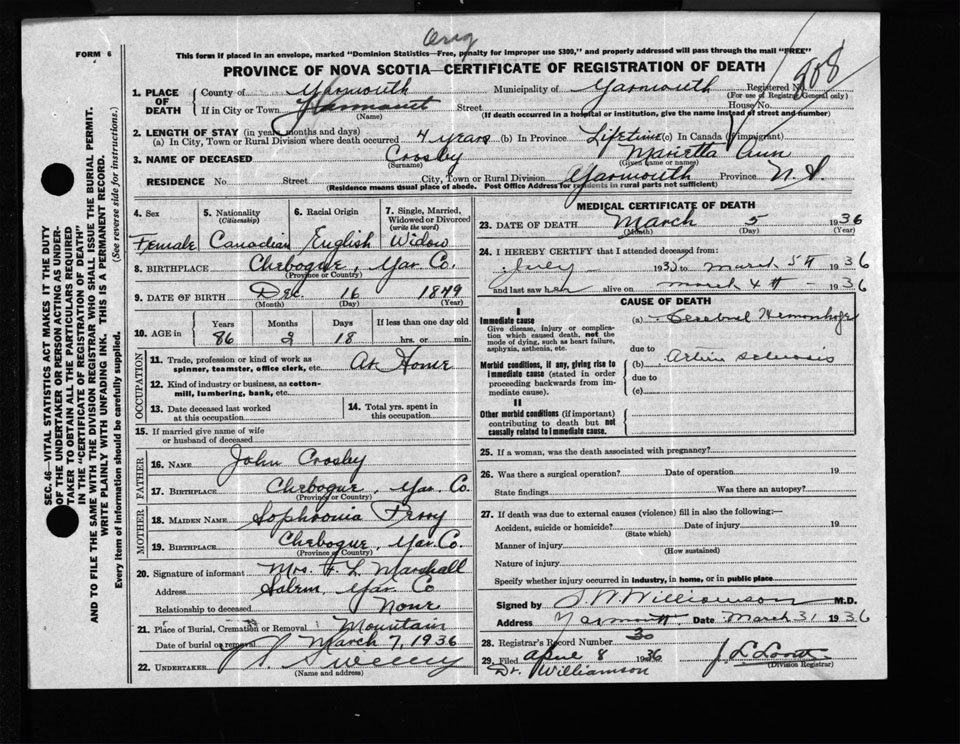 Orig
FORM 6
This form if placed in an envelope, marked "Dominion Statistics—Free, penalty for improper use $300," and properly addressed will pass through the mail "FREE"
PROVINCE OF NOVA SCOTIA—CERTIFICATE OF REGISTRATION OF DEATH
SEC. 46—VITAL STATISTICS ACT MAKES IT THE DUTY
OF THE UNDERTAKER OR PERSON ACTING AS UNDER-
TAKER TO OBTAIN ALL THE PARTICULARS REQUIRED
IN THE "CERTIFICATE OF REGISTRATION OF DEATH"
AND TO FILE THE SAME WITH THE DIVISION REGISTRAR WHO SHALL ISSUE THE BURIAL PERMIT.
WRITE PLAINLY WITH UNFADING INK. THIS IS A PERMANENT RECORD.
Every item of information should be carefully supplied. (See reverse side for instructions.)
1. PLACE OF DEATH County of Yarmouth Municipality of Yarmouth Registered No. 808
(For use of Registrar General only)
If in City or Town Yarmouth Street House No.
(Name) (If death occurred in a hospital or institution, give the name instead of street and number)
2. LENGTH OF STAY (in years, months and days)
(a) In City, Town or Rural Division where death occurred 4 years (b) In Province Lifetime (c) In Canada (if immigrant)
3. NAME OF DECEASED Crosby Marietta Ann
(Surname) (Given name or names)
RESIDENCE No. Street City, Town or Rural Division Yarmouth Province N.S.
(Residence means usual place of abode. Post Office Address for residents in rural parts not sufficient)
4. Sex Female
5. Nationality (Citizenship) Canadian
6. Racial Origin English
7. Single, Married, Widowed or Divorced (write the word) Widow
8. BIRTHPLACE Chebogue, Yar Co.
(Province or Country)
9. DATE OF BIRTH Dec. 16 1849
(Month) (Day) (Year)
10. AGE in Years Months Days If less than one day old
86 2 18 hrs. or min.
OCCUPATION
11. Trade, profession or kind of work as spinner, teamster, office clerk, etc. At Home
12. Kind of industry or business, as cotton-mill, lumbering, bank, etc.
13. Date deceased last worked at this occupation
14. Total yrs. spent in this occupation
15. If married give name of wife or husband of deceased
FATHER
16. NAME John Crosby
17. BIRTHPLACE Chebogue, Yar. Co.
(Province or Country)
MOTHER
18. MAIDEN NAME Sophronia Perry
19. BIRTHPLACE Chebogue, Yar. Co.
(Province or Country)
20. Signature of informant Mrs. H. L. Marshall
Address Salem, Yar Co
Relationship to deceased None
21. Place of Burial, Cremation or Removal Mountain
Date of burial or removal March 7, 1936
22. UNDERTAKER Sweeny
(Name and address)
MEDICAL CERTIFICATE OF DEATH
23. DATE OF DEATH March 5 1936
(Month) (Day) (Year)
24. I HEREBY CERTIFY that I attended deceased from:
July 1935 to March 5th 1936
and last saw her alive on March 4th 1936
CAUSE OF DEATH
I
Immediate cause (a) Cerebral Hemorrhage
Give disease, injury or complication which caused death, not the mode of dying, such as heart failure, asphyxia, asthenia, etc.
due to
Morbid conditions, if any, giving rise to immediate cause (stated in order proceeding backwards from immediate cause). (b) Arterio sclerosis
due to
(c)
II
Other morbid conditions (if important) contributing to death but not causally related to immediate cause.
25. If a woman, was the death associated with pregnancy?
26. Was there a surgical operation? Date of operation 19
State findings Was there an autopsy?
27. If death was due to external causes (violence) fill in also the following:—
Accident, suicide or homicide? Date of injury 19
(State which)
Manner of injury
(How sustained)
Nature of injury
Specify whether injury occurred in industry, in home, or in public place
Signed by Williamson M.D.
Address Yarmouth Date March 31 1936
28. Registrar's Record Number 30
29. Filed April 8 1936
(Division Registrar)
Dr. Williamson